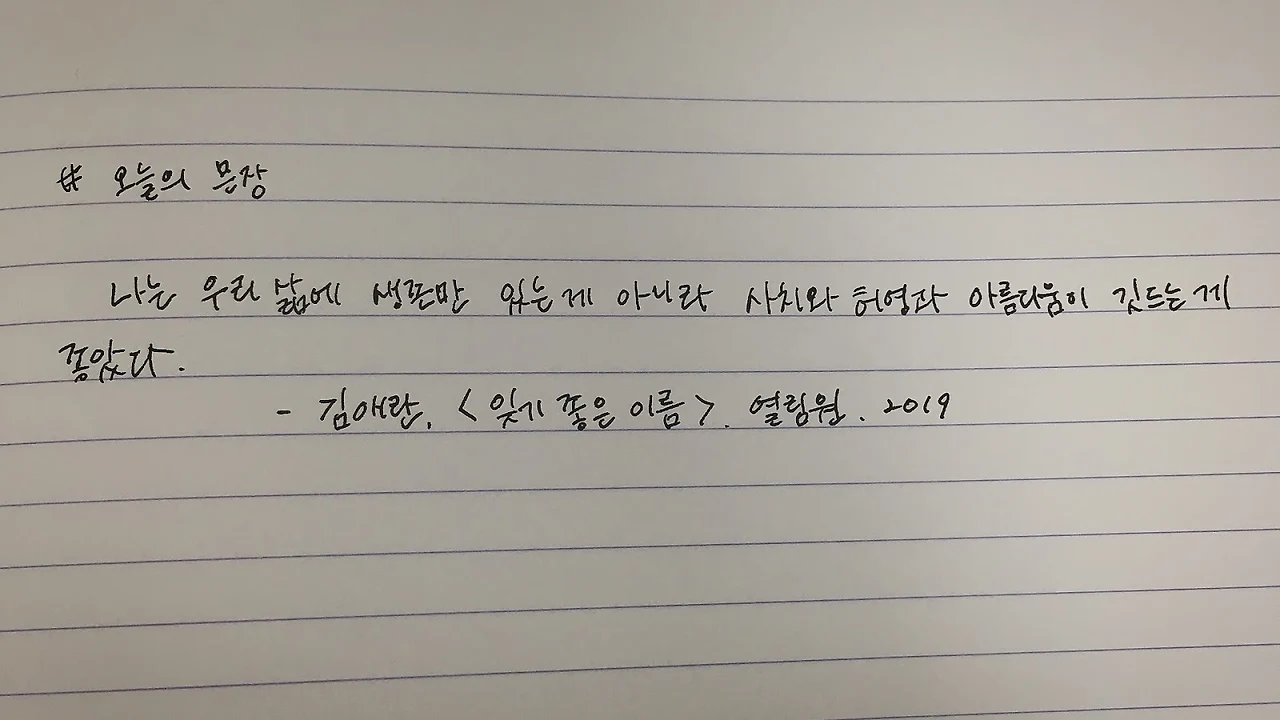 # 오늘의 문장
나는 우리 삶에 생존만 있는 게 아니라 사치와 허영과 아름다움이 깃드는 게
좋았다.
- 김애란, <잊기 좋은 이름>. 열림원. 2019